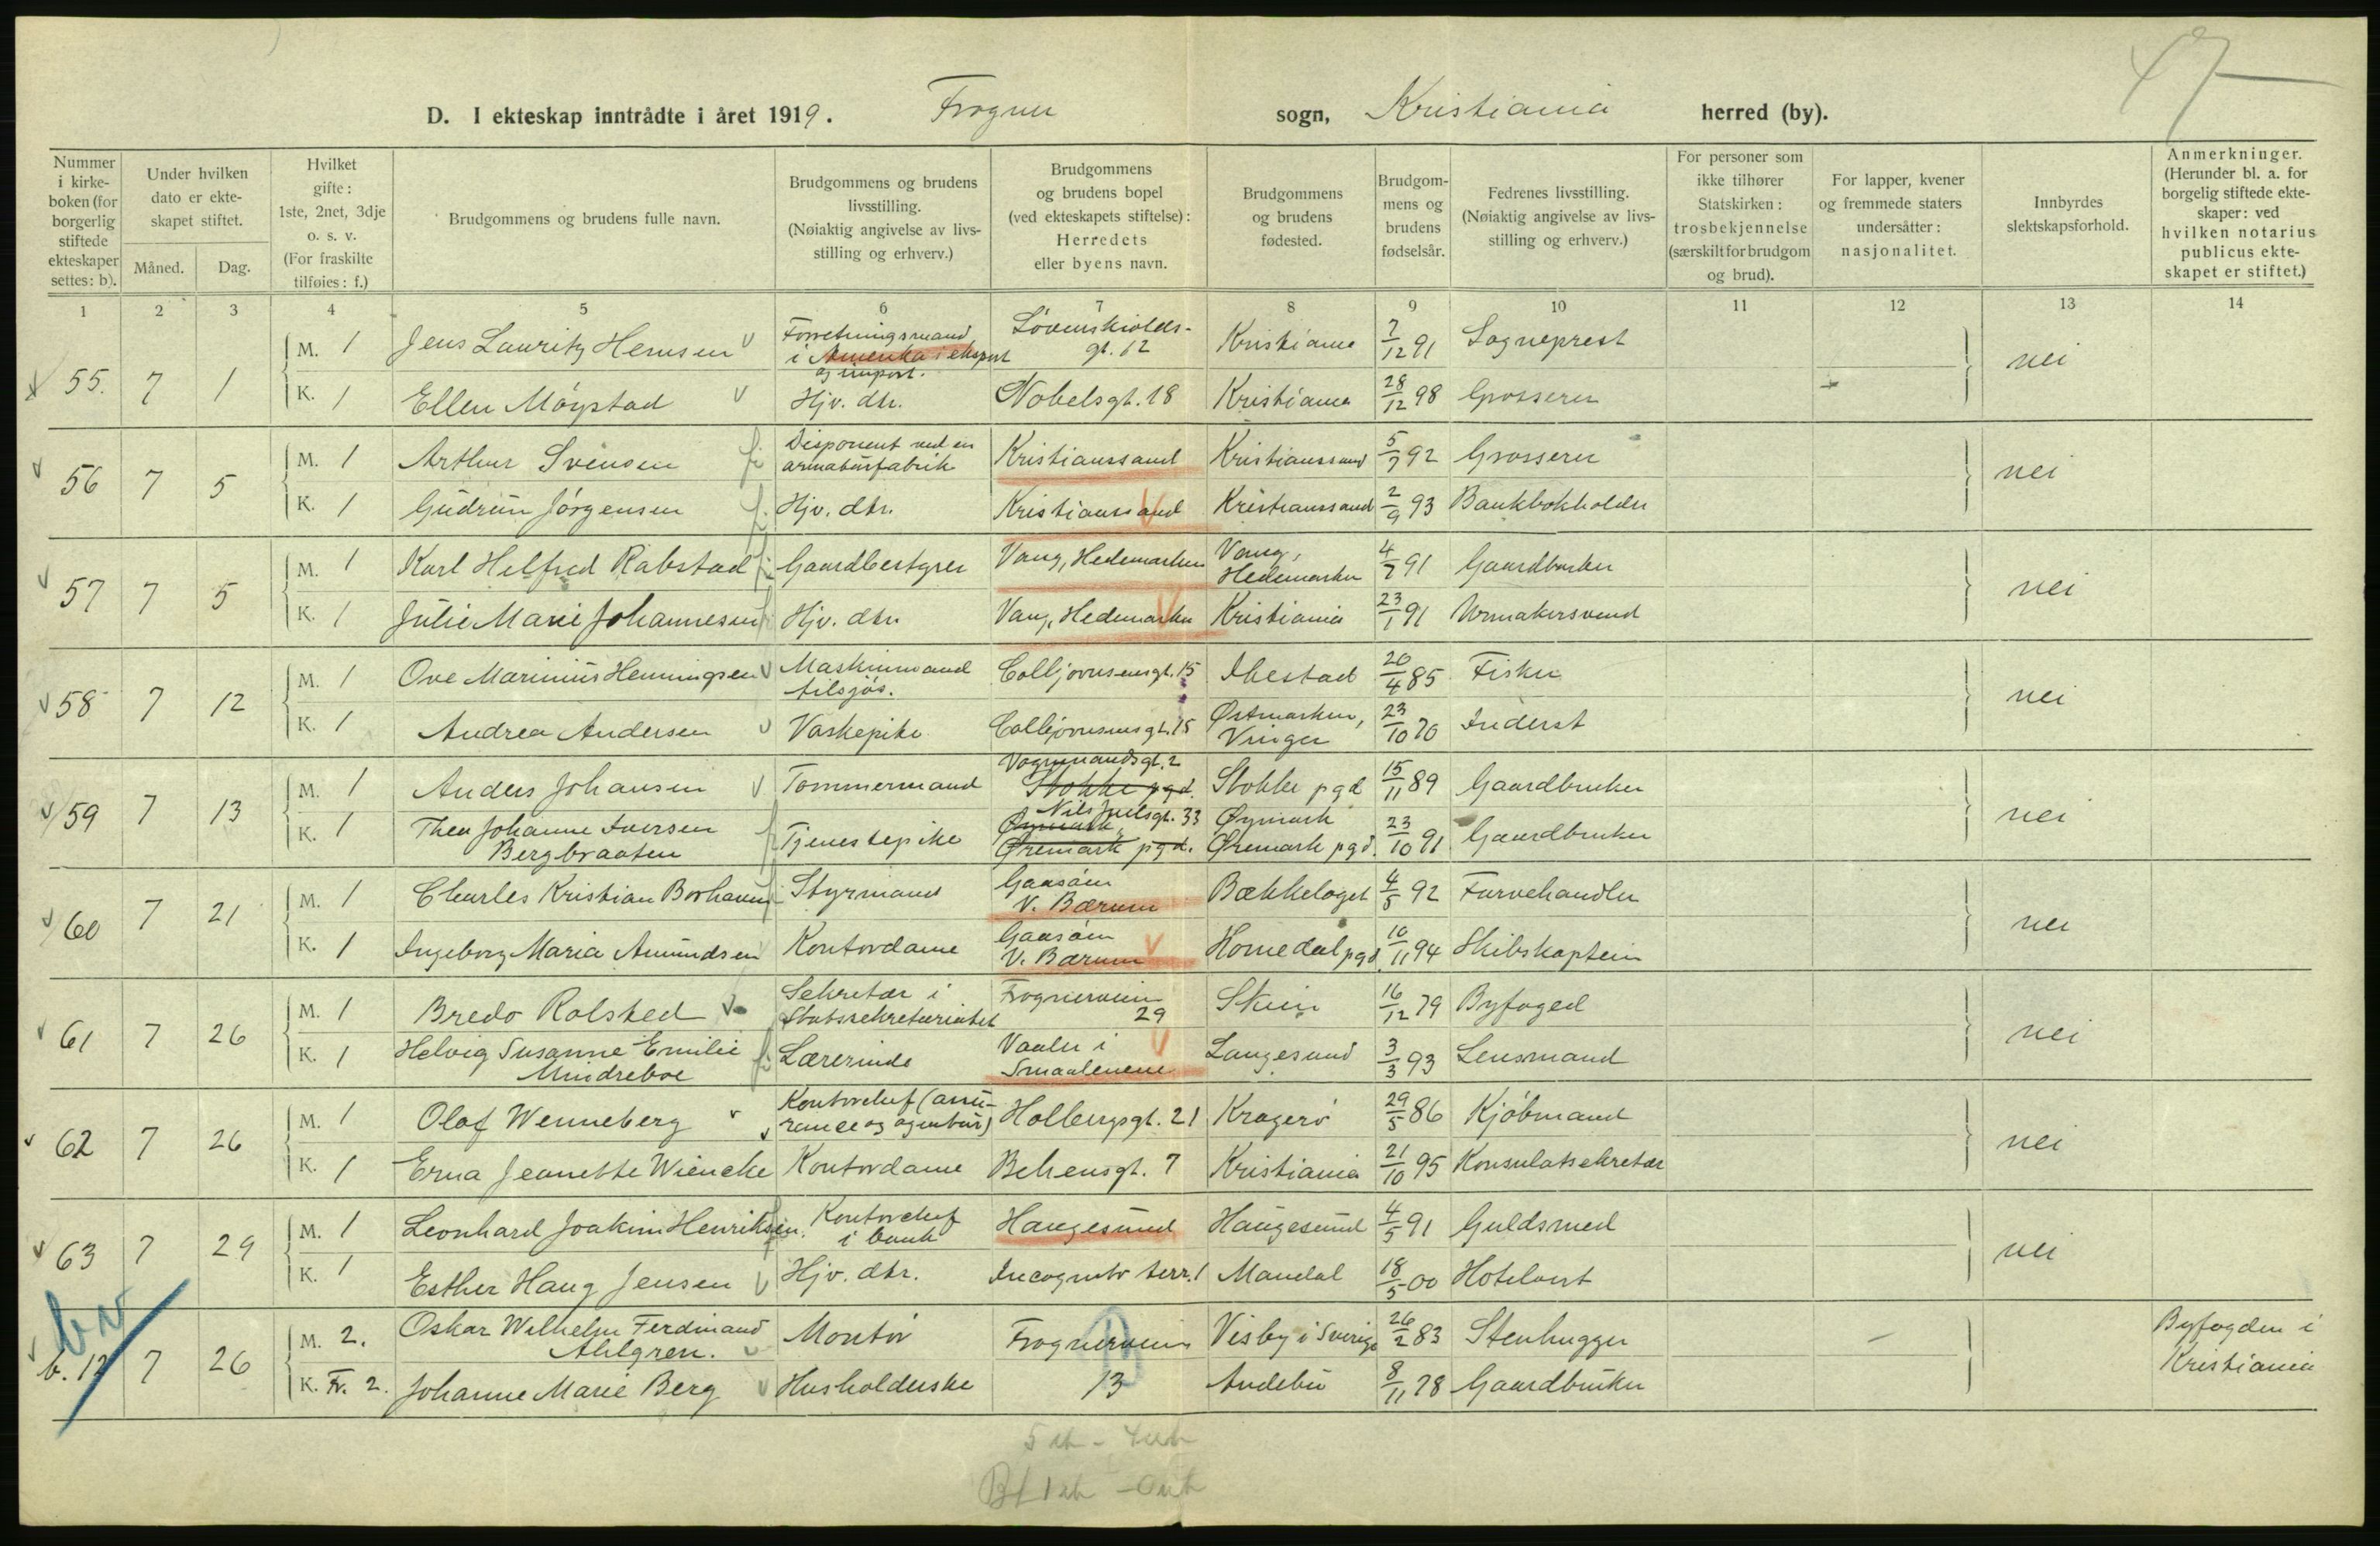 47
D. I ekteskap inntrådte i året 1919. Frogner sogn, Kristiania herred (by).
Nummer i kirkeboken (for borgerlig stiftede ekteskaper settes: b).
Under hvilken dato er ekteskapet stiftet.
Måned. Dag.
Hvilket gifte: 1ste, 2net, 3dje o. s. v. (For fraskilte tilføies: f.)
Brudgommens og brudens fulle navn.
Brudgommens og brudens livsstilling. (Nøiaktig angivelse av livsstilling og erhverv.)
Brudgommens og brudens bopel (ved ekteskapets stiftelse): Herredets eller byens navn.
Brudgommens og brudens fødested.
Brudgommens og brudens fødselsår.
Fedrenes livsstilling. (Nøiaktig angivelse av livsstilling og erhverv.)
For personer som ikke tilhører Statskirken: trosbekjennelse (særskilt for brudgom og brud).
For lapper, kvener og fremmede staters undersåtter: nasjonalitet.
Innbyrdes slektskapsforhold.
Anmerkninger. (Herunder bl. a. for borgelig stiftede ekteskaper: ved hvilken notarius publicus ekteskapet er stiftet.)
1 2 3 4 5 6 7 8 9 10 11 12 13 14
55. 7 1 M. 1 Jens Lauritz Hemsen Forretningsmand i Amerika i eksport og import. Løvenskiolds-gt. 12 Kristiania 7/12 91 Sogneprest nei
K. 1 Ellen Möystad Hjv. dtr. Nobelsgt. 18 Kristiania 28/12 98 Grosserer
56 7 5 M. 1 Arthur Svensen Disponent ved en armaturfabrik Kristianssand Kristianssand 5/7 92 Grosserer nei
K. 1 Gudrun Jörgensen Hjv. dtr. Kristianssand Kristianssand 2/9 93 Bankbokholder
57 7 5 M. 1 Karl Helfred Rabstad Gaardbestyrer Vang, Hedemarken Vang, Hedemarken 4/7 91 Gaardbruker nei
K. 1 Julie Marie Johannesen Hjv. dtr. Vang, Hedemarken Kristiania 23/1 91 Urmakersvend
58 7 12 M. 1 Ove Marinius Henningsen Maskinmand tilsjös. Colbjørnsensgt. 15 Ibestad 20/4 85 Fisker nei
K. 1 Andrea Andersen Vaskepike Colbjørnsensgt. 15 Østmarken, Vinger 23/10 70 Inderst
59 7 13 M. 1 Anders Johansen Tømmermand Vognmandsgt. 2 Stokke pgd. Stokke pgd 15/11 89 Gaardbruker nei
K. 1 Thea Johanne Iversen Bergbraaten Tjenestepike Nils Juelsgt. 33 Øymark, Øremark pgd. Øymark Øremark pgd. 23/10 91 Gaardbruker
60 7 21 M. 1 Charles Kristian Borhaven Styrmand V. Bærum Bækkelaget 4/5 92 Farvehandler nei
K. 1 Ingeborg Maria Amundsen Kontordame V. Bærum Homedal pgd. 10/11 94 Skibskaptein
61 7 26 M. 1 Bredo Rolsted Sekretær i Statssekretariatet Frognerveien 29 Skien 16/12 79 Byfoged nei
K. 1 Helvig Susanne Emilie Mundreboe Lærerinde Vaaler i Smaalenene Langesund 3/3 93 Lensmand
62 7 26 M. 1 Olaf Wenneberg Kontorchef (assurance og agentur) Holbergsgt. 21 Kragerö 29/5 86 Kjöbmand nei
K. 1 Erna Jeanette Wiencke Kontordame Behrensgt. 7 Kristiania 21/10 95 Konsulatsekretær
63 7 29 M. 1 Leonhard Joakim Henriksen. Kontorchef i bank Haugesund Haugesund 4/5 91 Guldsmed nei
K. 1 Esther Haug Jensen Hjv. dtr. Incognito terr. 1 Mandal 18/5 00 Hotelvert
b. 12 7 26 M. 2. Oskar Wilhelm Ferdinand Ahlgren. Montör Frognerveien 13 Visby i Sverige 26/2 83 Stenhugger — Byfogden i Kristiania
K. Fr. 2. Johanne Marie Berg Husholderske Andebu 8/11 78 Gaardbruker